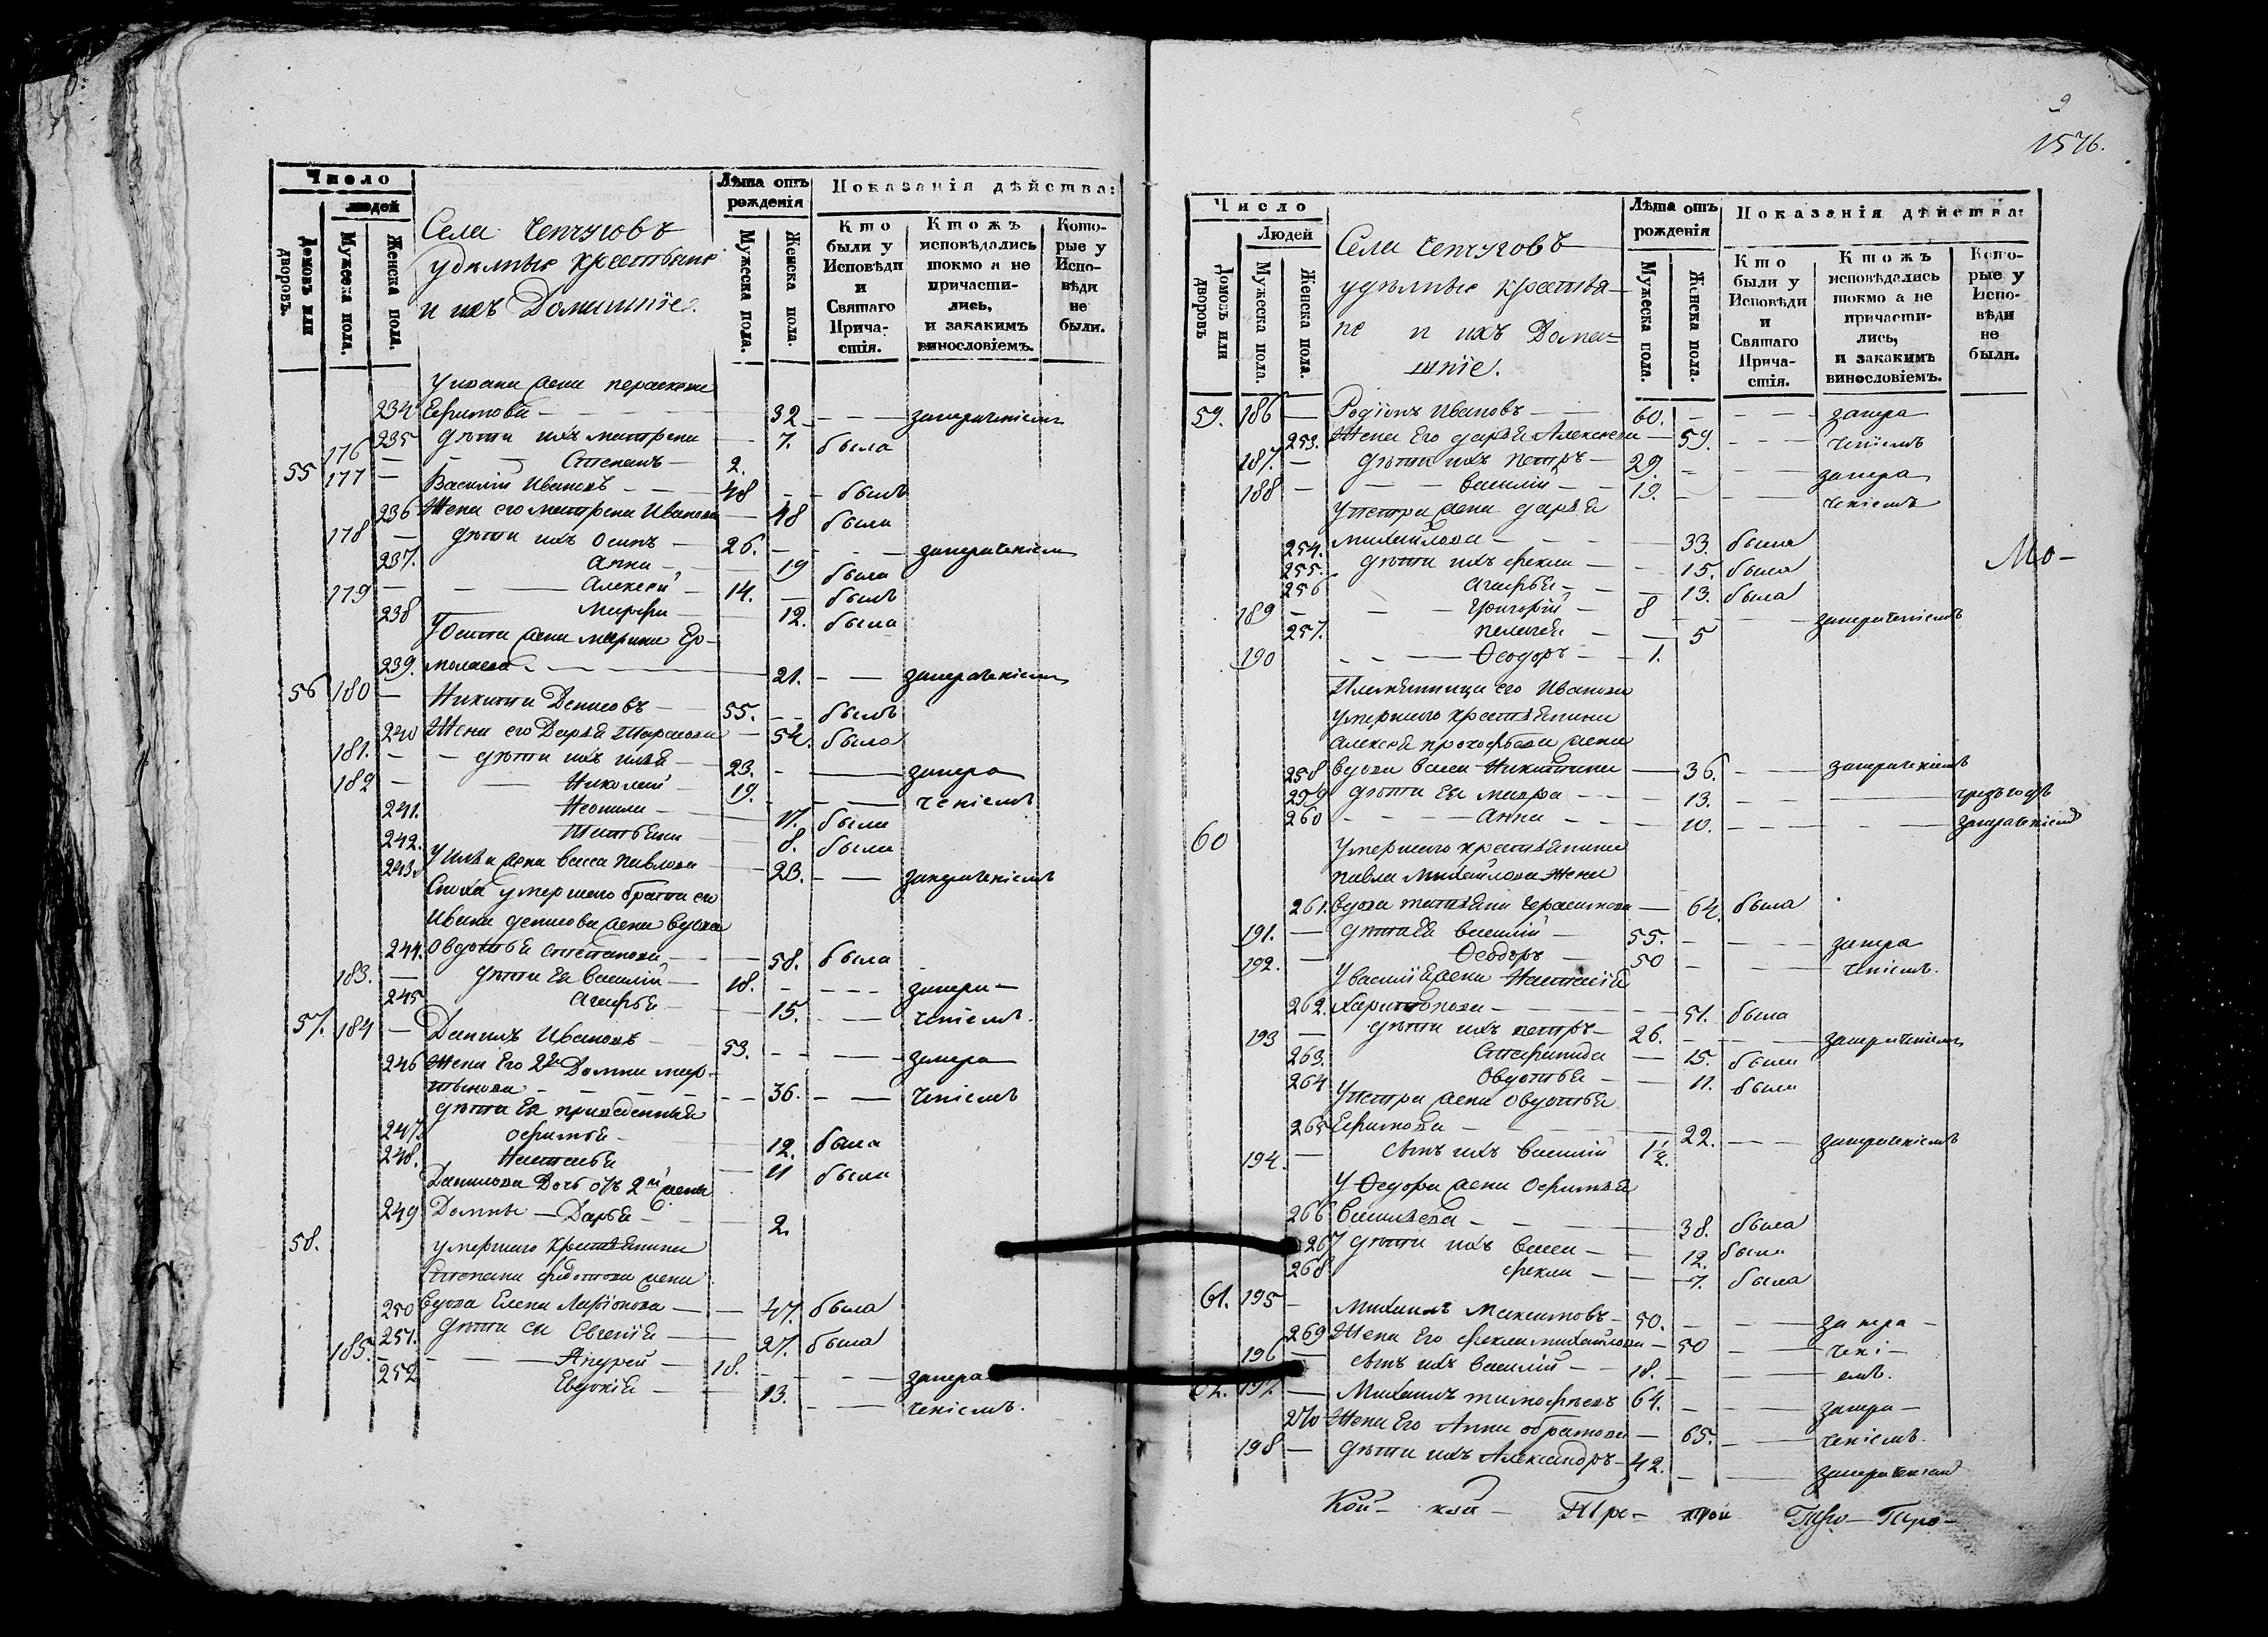 Число
людей
Домовъ или дворовъ.
Мужеска пола.
Женска пола.
Села Чепчуговъ
удѣльные крестьяне
и ихъ Домашніе.
Лѣта отъ рожденія
Мужеска пола.
Женска пола.
Показанія дѣйства:
Кто были у Исповѣди и Святаго Причастія.
Ктожъ исповѣдались токмо а не причастились, и закакимъ винословіемъ.
Которые у Исповѣди не были.
жена Параскева
234 Ефимова — 32 — — запераченіем
235 дѣти ихъ Матрена — 7. была
176 — Степанъ — 2.
55 177 — Василій Ивановъ — 48 — — былъ
236 Жена его Матрена Иванова — 48 была
178 — дѣти ихъ Осипъ — 26. — — — запераченіем
237. Анна — 19 была
179 — Алексей — 14. — былъ
238 Марфа — 12. была
У Осипа жена Марина Ер-
239. молаева — 21. — — запераченіем
56 180 — Никита Денисовъ — 55. — — былъ
240 Жена его Дарья — 54. была
181. — дѣти ихъ Илья — 23. — — запера
182 — Николай — 19. — — ченіемъ
241. Неонила — 17. была
242. Татьяна — 8. была
243. У Ильи жена Васса Павлова — 23. — — запераченіемъ
умершаго брата его
Ивана Денисова жена вдова
244. Овдотья Степанова — 58. была
183. — дѣти Ея Василій — 18. — — — запера—
245 Агафья — 15. — — ченіемъ.
57. 184 — Данилъ Ивановъ — 53. — — запера
246 Жена Его 2я Домна Мар-
тынова — 36. — — ченіемъ
дѣти Ея приведенныя
247. Офимья — 12. была
248. Настасья — 11 была
Данилова Дочь отъ 2й жены
249 Домны — Дарья — 2.
58. умершаго крестьянина
Степана Федотова жена
250 вдова Елена Ларіонова — 47. была
251. дѣти ея Евгенія — 27. была
185. — Андрей — 18. — — — запера
252 Евдокія — 13. — — ченіемъ.
9
1576.
Число
Людей
Домовъ или дворовъ
Мужеска пола.
Женска пола.
Села Чепчуговъ
удѣльные крестья—
не и ихъ Дома=
шніе.
Лѣта отъ рожденія
Мужеска пола.
Женска пола.
Показанія дѣйства:
Кто были у Исповѣди и Святаго Причастія.
Ктожъ исповѣдались токмо а не причастились, и закакимъ винословіемъ.
Которые у Исповѣди не были.
59. 186 — Родіонъ Ивановъ — 60. — — — запера
253. Жена Его Дарья Алексеева — 59. — — — ченіемъ
187. — дѣти ихъ Петръ — 29. — — — запера
188 — — Василій — 19. — — — ченіемъ
У Петра жена Дарья
254. Михайлова — 33. была
Мо—
255. дѣти ихъ Фекла — 15. была
256 Агафья — 13. была
189 — — Григорій — 8 — — — запераченіемъ
257. Пелагея — 5
190 — Ѳеодоръ — 1.
Племянница его Иванова
умершаго крестьянина
Алексея Прокофьева жена
258 вдова Васса Никитина — 36. — — запераченіемъ
259 дѣти Ея Мавра — 13. — — —
260 — Анна — 10. — — — запераченіем
60 умершаго крестьянина
Павла Михайлова жена
261. вдова Татьяна Герасимова — 64. была
191. — дѣти Ея Василій — 55. — — запера
192. — Ѳеодоръ — 50 — — ченіемъ.
У Василія жена Настасія
262. Харитонова — 51. была
193 — дѣти ихъ Петръ — 26. — — — запераченіем
263. Степанида — 15. была
264 Овдотья — 11. была
У Петра жена Овдотья
265 Ефимова — 22. — — запераченіемъ
194. — сынъ ихъ Василій 1/2.
У Ѳедора жена Офимья
266 Васильева — 38. была
267 дѣти ихъ Васса — 12. была
268 Фекла — 7. была
61. 195 — Михаилъ Максимовъ — 50. — — запера—
269 Жена Его Фекла Михайлова — 50 — — чені—
196 — сынъ ихъ Василій — 18. — — емъ.
62. 197. — Михаилъ Тимофѣевъ 64. — — запера—
270 Жена Его Анна — 65. — — ченіемъ.
198 — дѣти ихъ Александръ — 42. — — запераченіем